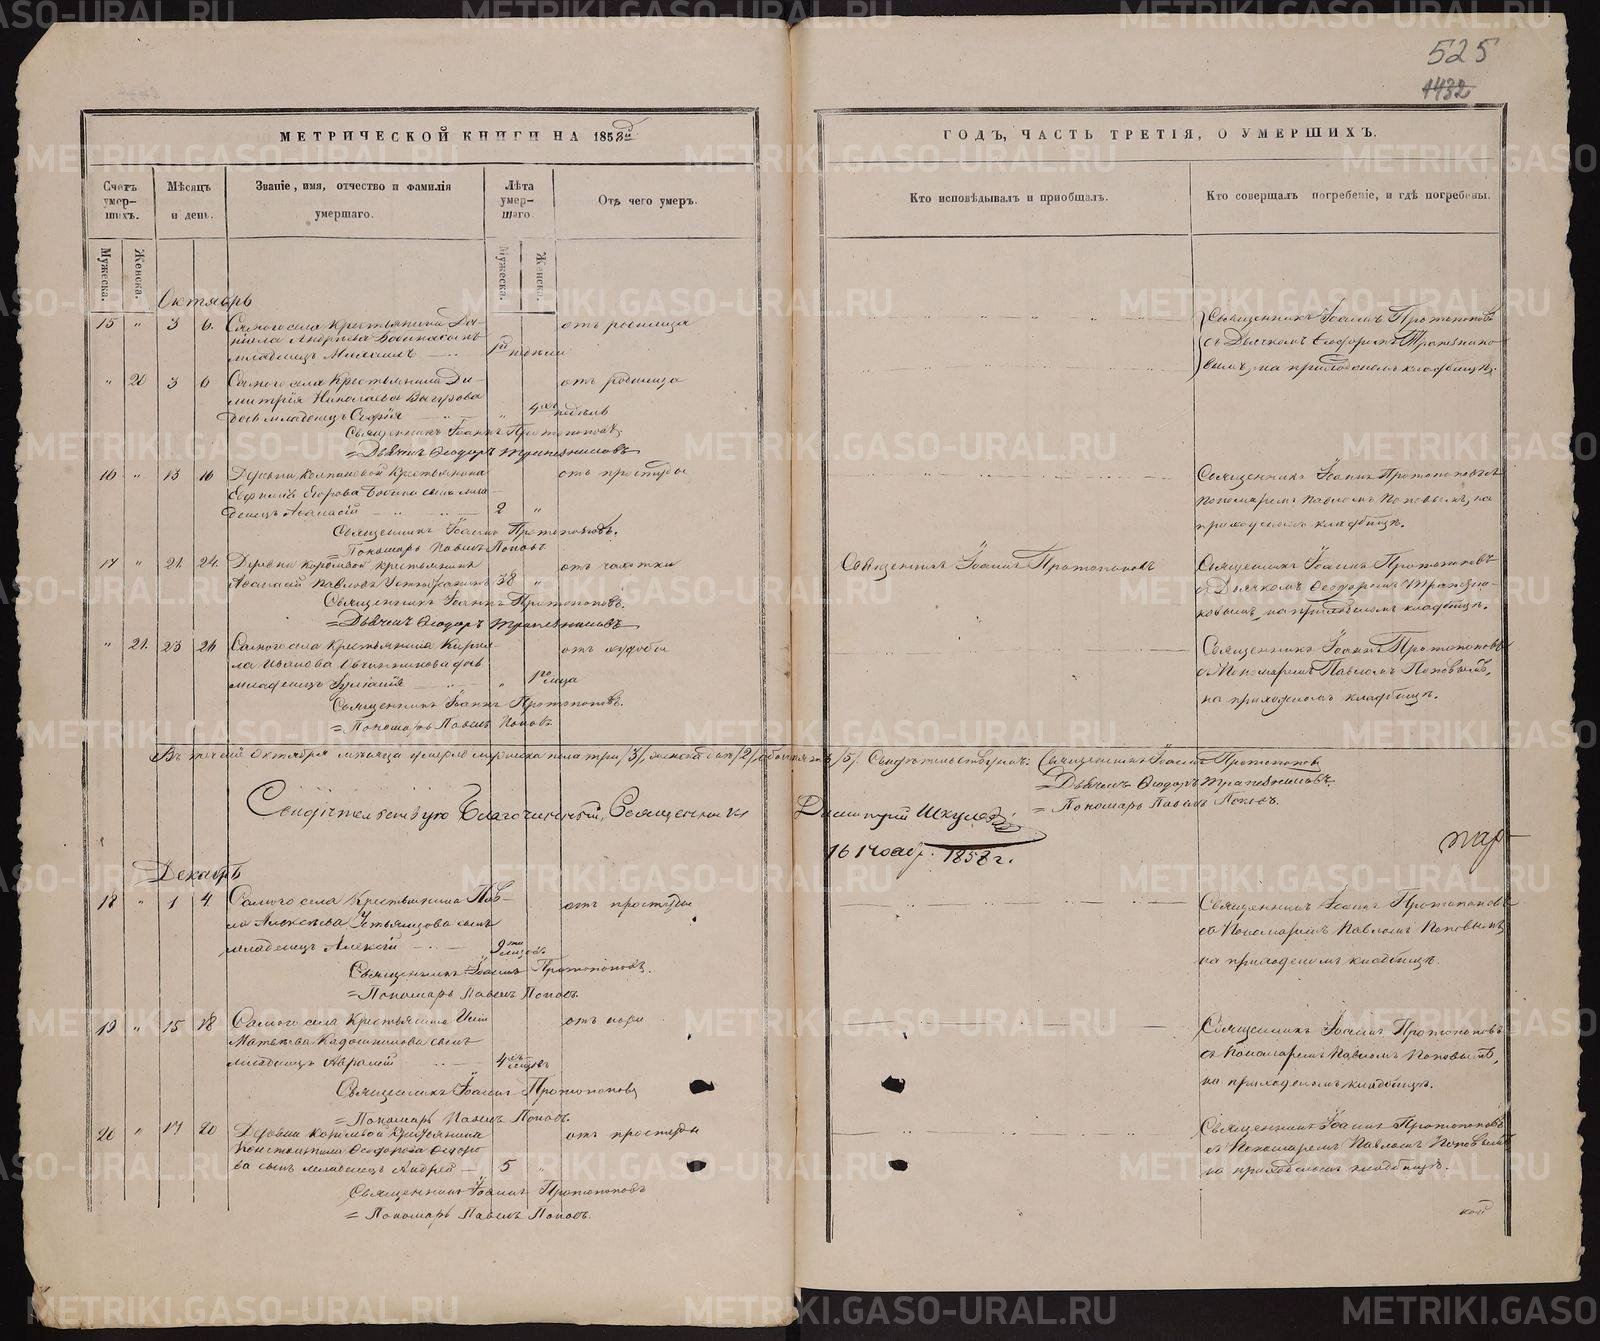 525
1432
МЕТРИЧЕСКОЙ КНИГИ НА 1858й
ГОДЪ, ЧАСТЬ ТРЕТІЯ, О УМЕРШИХЪ.
Счетъ умер-шихъ.
Мѣсяцъ и день.
Званіе, имя, отчество и фамилія умершаго.
Лѣта умер-шаго.
Отъ чего умеръ.
Кто исповѣдывалъ и пріобщалъ.
Кто совершалъ погребеніе, и гдѣ погребены.
Мужеска.
Женска.
Мужеска.
Женска.
Октябрь
15 " 3 6. Самого села Крестьянина Да- отъ родимца
ніила Андреева
младенецъ Михаилъ 1й недѣли
Священникъ Іоаннъ Протопоповъ
съ Дьячкомъ Ѳеодоромъ Трапезнико-
вымъ, на приходскомъ кладбищѣ.
" 20 3 6 Самого села Крестьянина Ди- отъ родимца
митрія Николаева
дочь младенецъ Софія " 4хъ недѣль
Священникъ Іоаннъ Протопоповъ
= Дьячекъ Ѳеодоръ Трапезниковъ
16 " 13 16 Деревни Крестьянина отъ простуды
Егорова сынъ мла-
денецъ Аѳанасій 2 "
Священникъ Іоаннъ Протопоповъ.
= Пономарь Павелъ Поповъ
Священникъ Іоаннъ Протопоповъ съ
пономаремъ Павломъ Поповымъ, на
приходскомъ кладбищѣ.
17 " 21 24. Деревни крестьянинъ отъ чахотки
Аѳанасій Павловъ 38 "
Священникъ Іоаннъ Протопоповъ.
= Дьячекъ Ѳеодоръ Трапезниковъ
Священникъ Іоаннъ Протопоповъ
Священникъ Іоаннъ Протопоповъ
съ Дьячкомъ Ѳеодоромъ Трапезни-
ковымъ, на приходскомъ кладбищѣ.
" 21. 23 26 Самого села Крестьянина Кирил- отъ худобы
ла Иванова Овчинникова дочь
младенецъ Іуліанія " 1го мѣсяца
Священникъ Іоаннъ Протопоповъ.
= Пономарь Павелъ Поповъ
Священникъ Іоаннъ Протопоповъ
съ Пономаремъ Павломъ Поповымъ,
на приходскомъ кладбищѣ.
Въ теченіи Октября мѣсяца умерло мужеска пола три /3/, женска двѣ /2/, обоего пять /5/. Свидѣтельствуемъ: Священникъ Іоаннъ Протопоповъ
= Дьячекъ Ѳеодоръ Трапезниковъ.
= Пономарь Павелъ Поповъ.
Свидѣтельствую Благочинный, Священникъ Димитрій
16 Ноябр. 1858 г.
Декабрь
18 " 1 4 Самого села Крестьянина Пав- отъ простуды
ла Алексѣева Устьянцова сынъ
младенецъ Алексій 9ти мѣсяцовъ
Священникъ Іоаннъ Протопоповъ.
= Пономарь Павелъ Поповъ.
Священникъ Іоаннъ Протопоповъ
съ Пономаремъ Павломъ Поповымъ
на приходскомъ кладбищѣ.
19 " 15 18 Самого села Крестьянина отъ кори
Матвѣева Кадошникова сынъ
младенецъ 4хъ мѣсяцовъ
Священникъ Іоаннъ Протопоповъ
= Пономарь Павелъ Поповъ.
Священникъ Іоаннъ Протопоповъ
съ Пономаремъ Павломъ Поповымъ,
на приходскомъ кладбищѣ.
20 " 17 20 Деревни Крестьянина отъ простуды
Константина Ѳеодорова
сынъ младенецъ Андрей 5 "
Священникъ Іоаннъ Протопоповъ
= Пономарь Павелъ Поповъ.
Священникъ Іоаннъ Протопоповъ
съ Пономаремъ Павломъ Поповымъ
на приходскомъ кладбищѣ.
METRIKI.GASO-URAL.RU